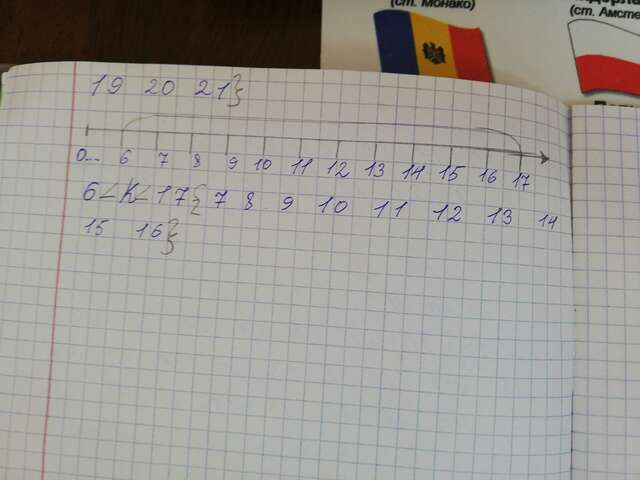 (ст. Монако)
(ст. Амсте
19 20 21}
0... 6 7 8 9 10 11 12 13 14 15 16 17
6<K<17{ 7 8 9 10 11 12 13 14
15 16}